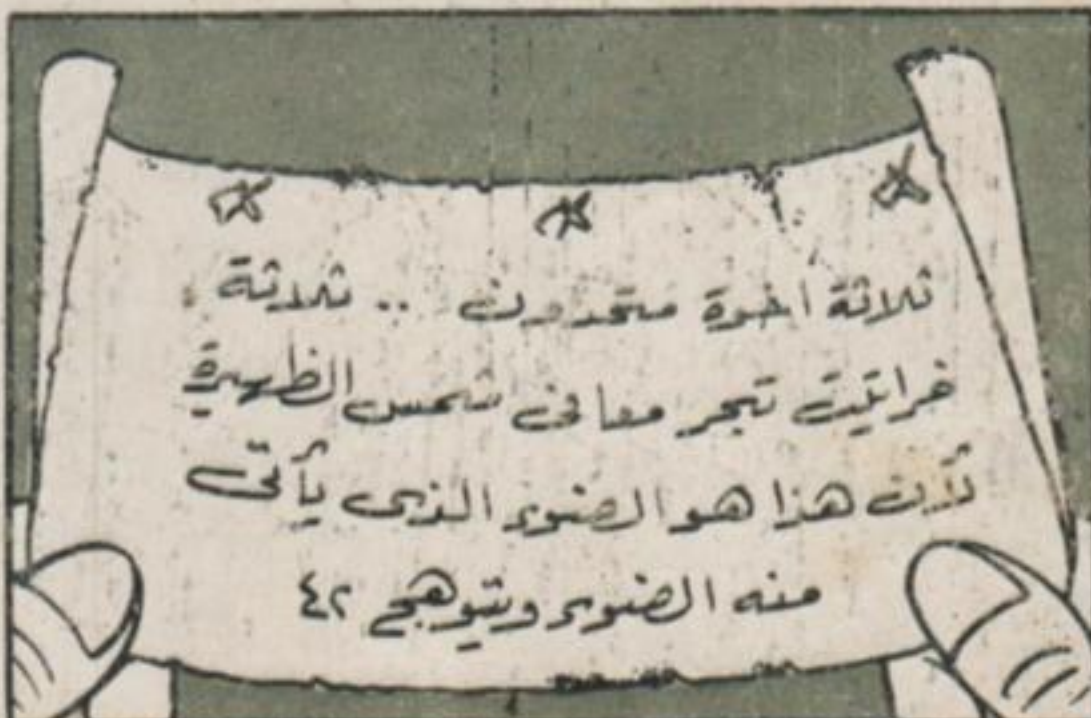 ثلاثة أخوة متحدون .. ثلاثة
خراتيت تبحر معا فى شمس الظهيرة
لأن هذا هو الضوء الذى يأتى
منه الضوء ويتوهج ٤٢